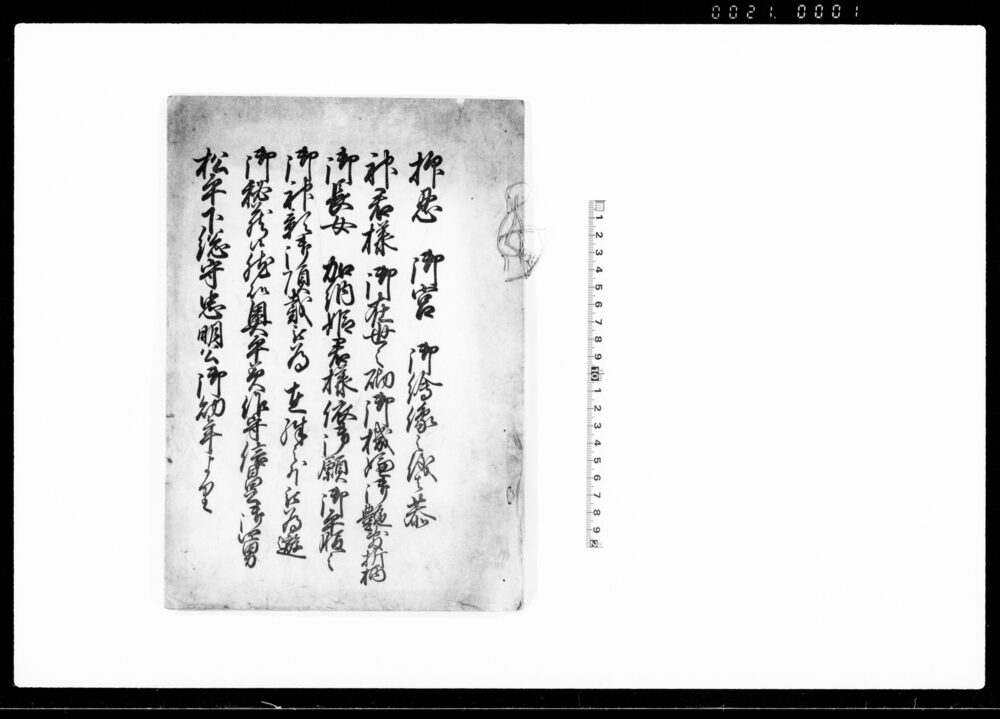 0021. 0001
抑忍　御宮　御絵像之儀者恭
神君様　御在世之砌御機嫌御艶敷折柄
御長女　加納姫君様依御願御平服之
御神影御頂戴被為　在殊之外被為遊
御秘蔵候然処奥平美作守信昌御次男
松平下総守忠明公御幼年より
1 2 3 4 5 6 7 8 9 10 1 2 3 4 5 6 7 8 9